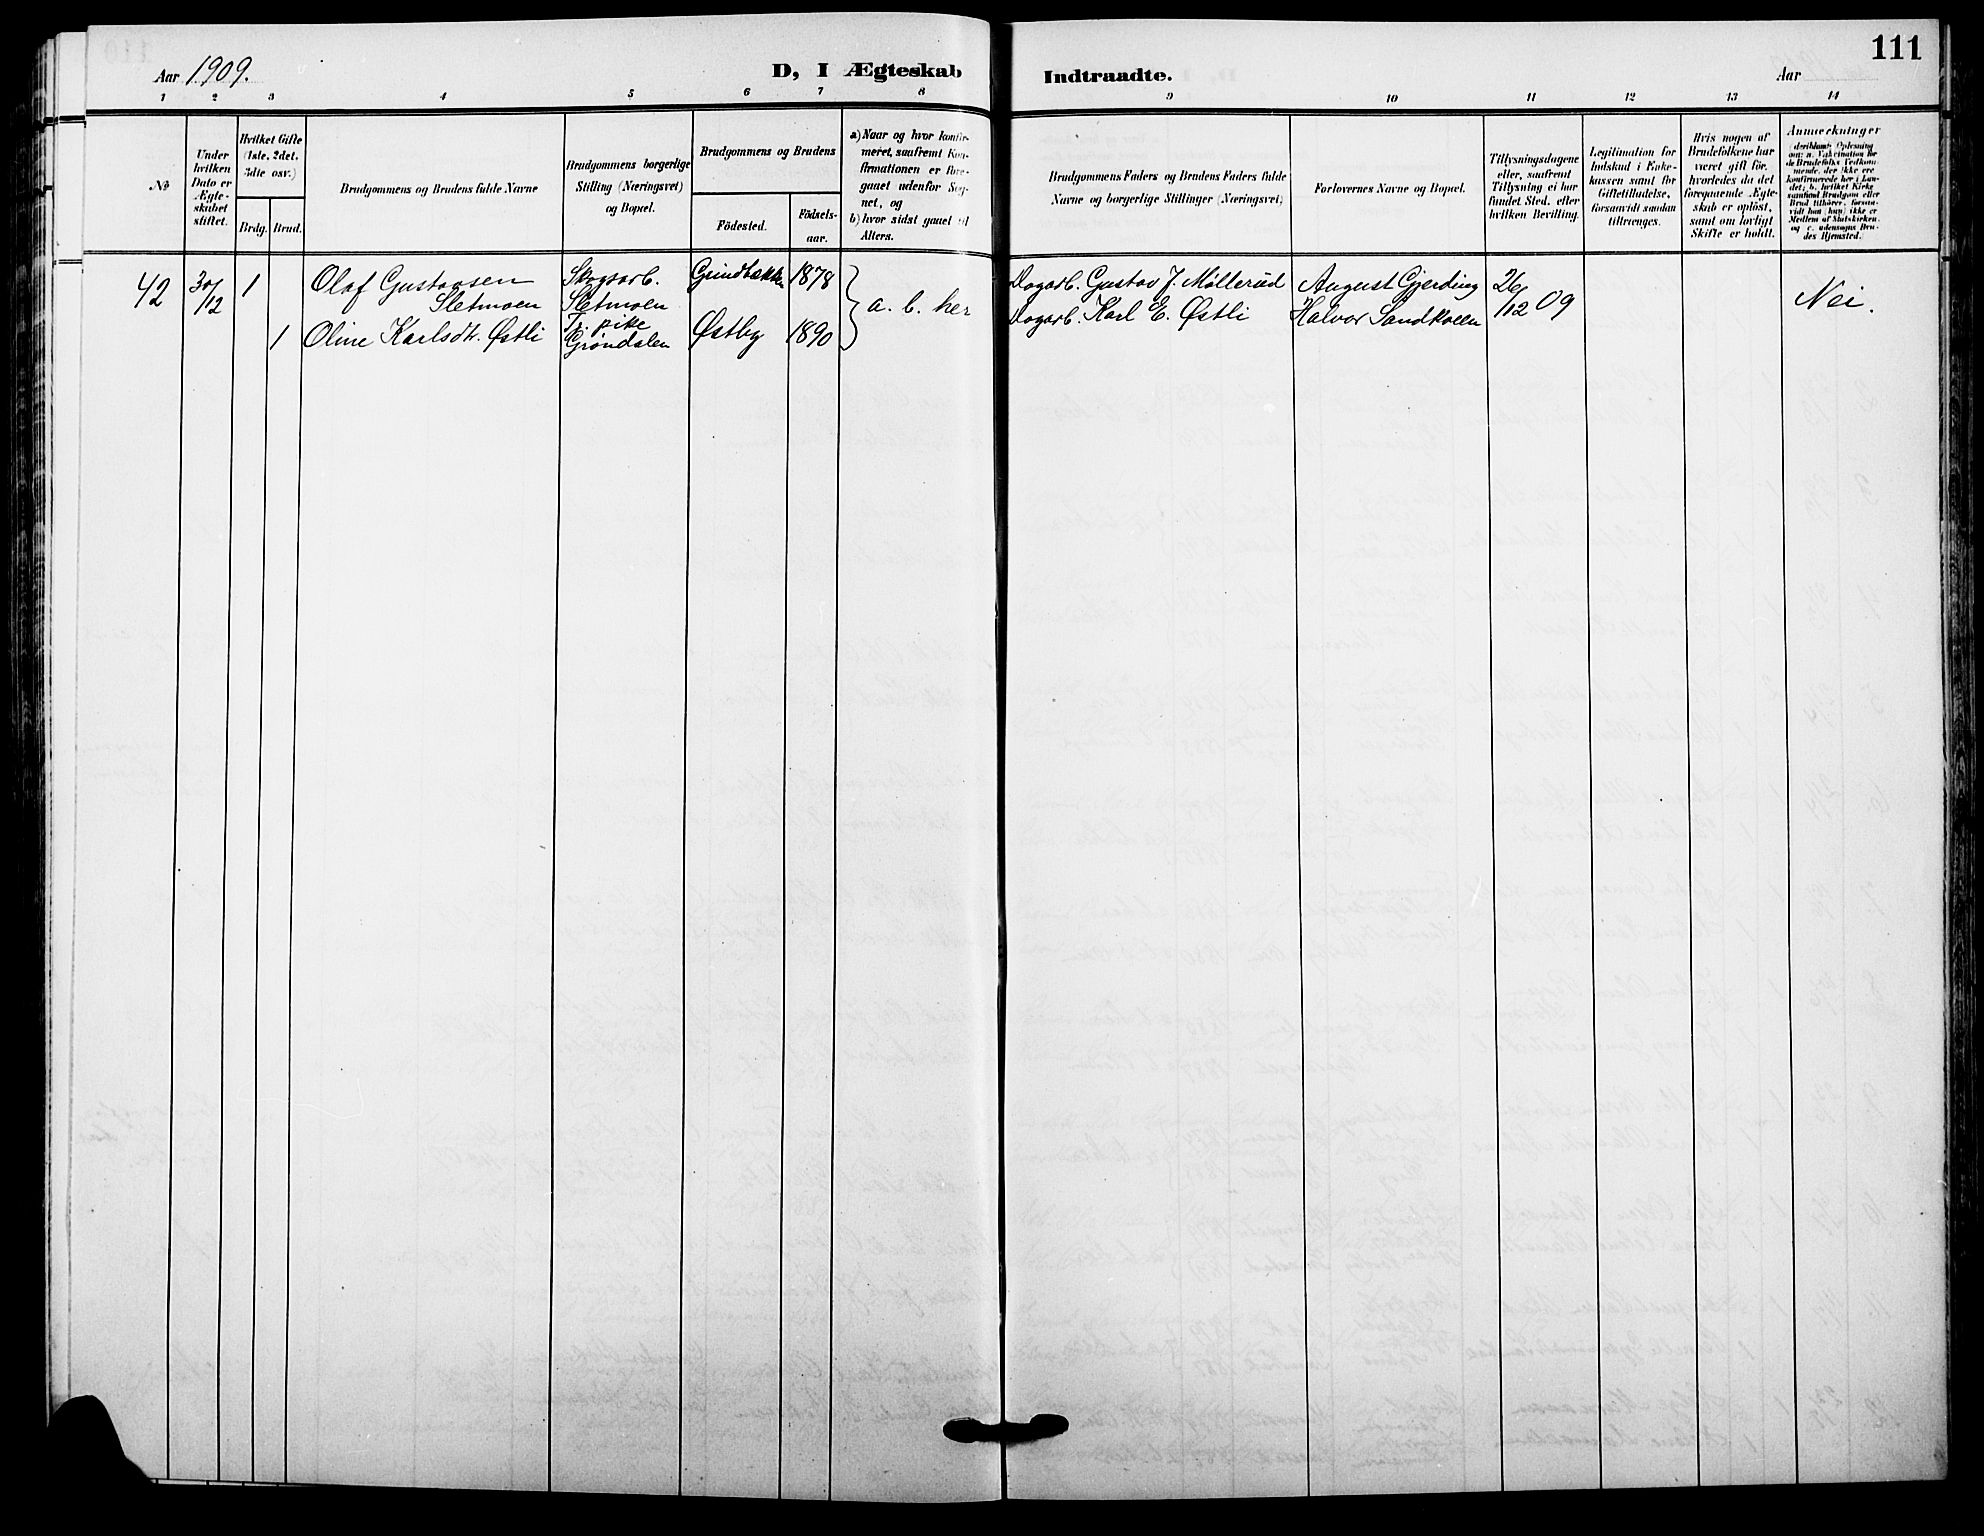 111
Aar 1909.
D, I Ægteskab Indtraadte.
Aar
1 2 3 4 5 6 7 8 9 10 11 12 13 14
No
Under hvilken Dato er Ægteskabet stiftet.
Hvilket Gifte (1ste, 2det, 3die osv.)
Brdg. Brud.
Brudgommens og Brudens fulde Navne
Brudgommens borgerlige Stilling (Næringsvei) og Bopæl.
Brudgommens og Brudens
Födested.
Födsels-aar.
a) Naar og hvor konfirmeret, saafremt Konfirmationen er foregaaet udenfor Sognet, og
b) hvor sidst gaaet til Alters.
Brudgommens Faders og Brudens Faders fulde Navne og borgerlige Stillinger (Næringsvei)
Forlovernes Navne og Bopæl.
Tillysningsdagene eller, saafremt Tillysning ei har fundet Sted, efter hvilken Bevilling.
Legitimation for Indskud i Enkekassen samt for Giftetilladelse, forsaavidt saadan tiltrænges.
Hvis nogen af Brudefolkene har været gift för, hvorledes da det foregaaende Ægteskab er oplöst, samt om lovligt Skifte er holdt.
Anmærkninger
42 30/12 1 Olaf Gustavsen Sletmoen Skogsarb. Sletmoen Grindbækken 1878
1 Oline Karlsdtr. Østli Tj. pike Grøndalen Østby 1890
a. b. her
Dagarb. Gustav J. Møllerud August Gjerding 26/12 09 Nei.
Dagarb. Karl E. Østli Halvor Sandkveen